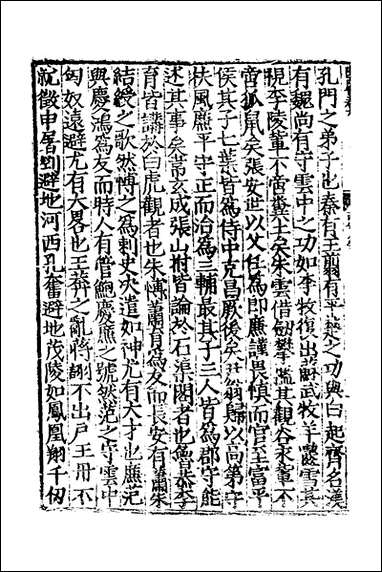 孔門之弟子也秦有王翦有平楚之功與白起齊名漢
有魏尚有守雲中之功如李牧復出蘇武牧羊齧雪其
視李陵輩不啻糞土矣朱雲借劒攀檻其觀谷永輩不
啻狐鼠矣張安世以父任為郎廉謹畏慎而官至富平
侯其子七葉皆為侍中克昌厥後矣尹翁歸以高第守
扶風廉平守正而治為三輔最其子三人皆為郡守能
述其事矣韋玄成張山拊皆論於石渠閣者也魯恭李
育皆講於白虎觀者也朱博蕭育為友而長安有蕭朱
結綬之歌然博之為刺史決遣如神尤有大才也廉范
與慶鴻為友而時人有管鮑慶廉之號然范之守雲中
匈奴遠避尤有大畧也王莽之亂蔣詡不出戶王丹不
就徵申屠剛避地河西孔奮避地茂陵如鳳凰翔千仞